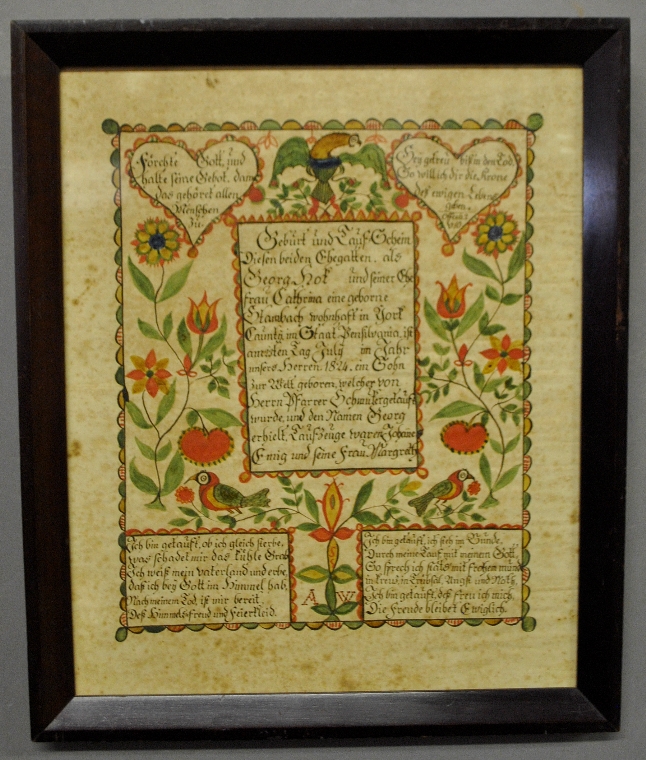 Förchte Gott, und
halte seine Gebot, dann
das gehöret allen
Menschen
zu
Sey getreu biß in den Tod,
So will ich dir die Krone
deß ewigen Lebens
geben.
Geburt und Tauf Schein
Diesen beiden Ehegatten, als
Georg Hok und seiner Ehe
frau Cathrina eine geborne
Stambach wohnhaft in York
Caunty im Staat Pensilvania, ist
am Tag July im Jahr
unsers Herren 1824. ein Sohn
zur Welt geboren, welcher von
Herrn Pfarrer Schmuker getauft
wurde, und den Namen Georg
erhielt. Taufzeuge waren Johannes
Emig und seine Frau Margrath
Ich bin getauft, ob ich gleich sterbe,
was schadet mir das kühle Grab
Ich weiß mein vaterland und erbe,
daß ich bey Gott im Himmel hab,
Nach meinem Tod, ist mir bereit
Deß Himmels-freud und Feierkleid.
Ich bin getauft, ich steh im Bunde,
Durch meine Tauf, mit meinem Gott,
So sprech ich stets mit frohem munde
in kreuz in Trübsal Angst und Noth,
Ich bin getauft, deß freu ich mich
Die Freude bleibet Ewiglich.
A W